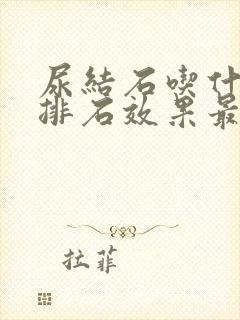 尿結石喫什
排石效果最
拉菲